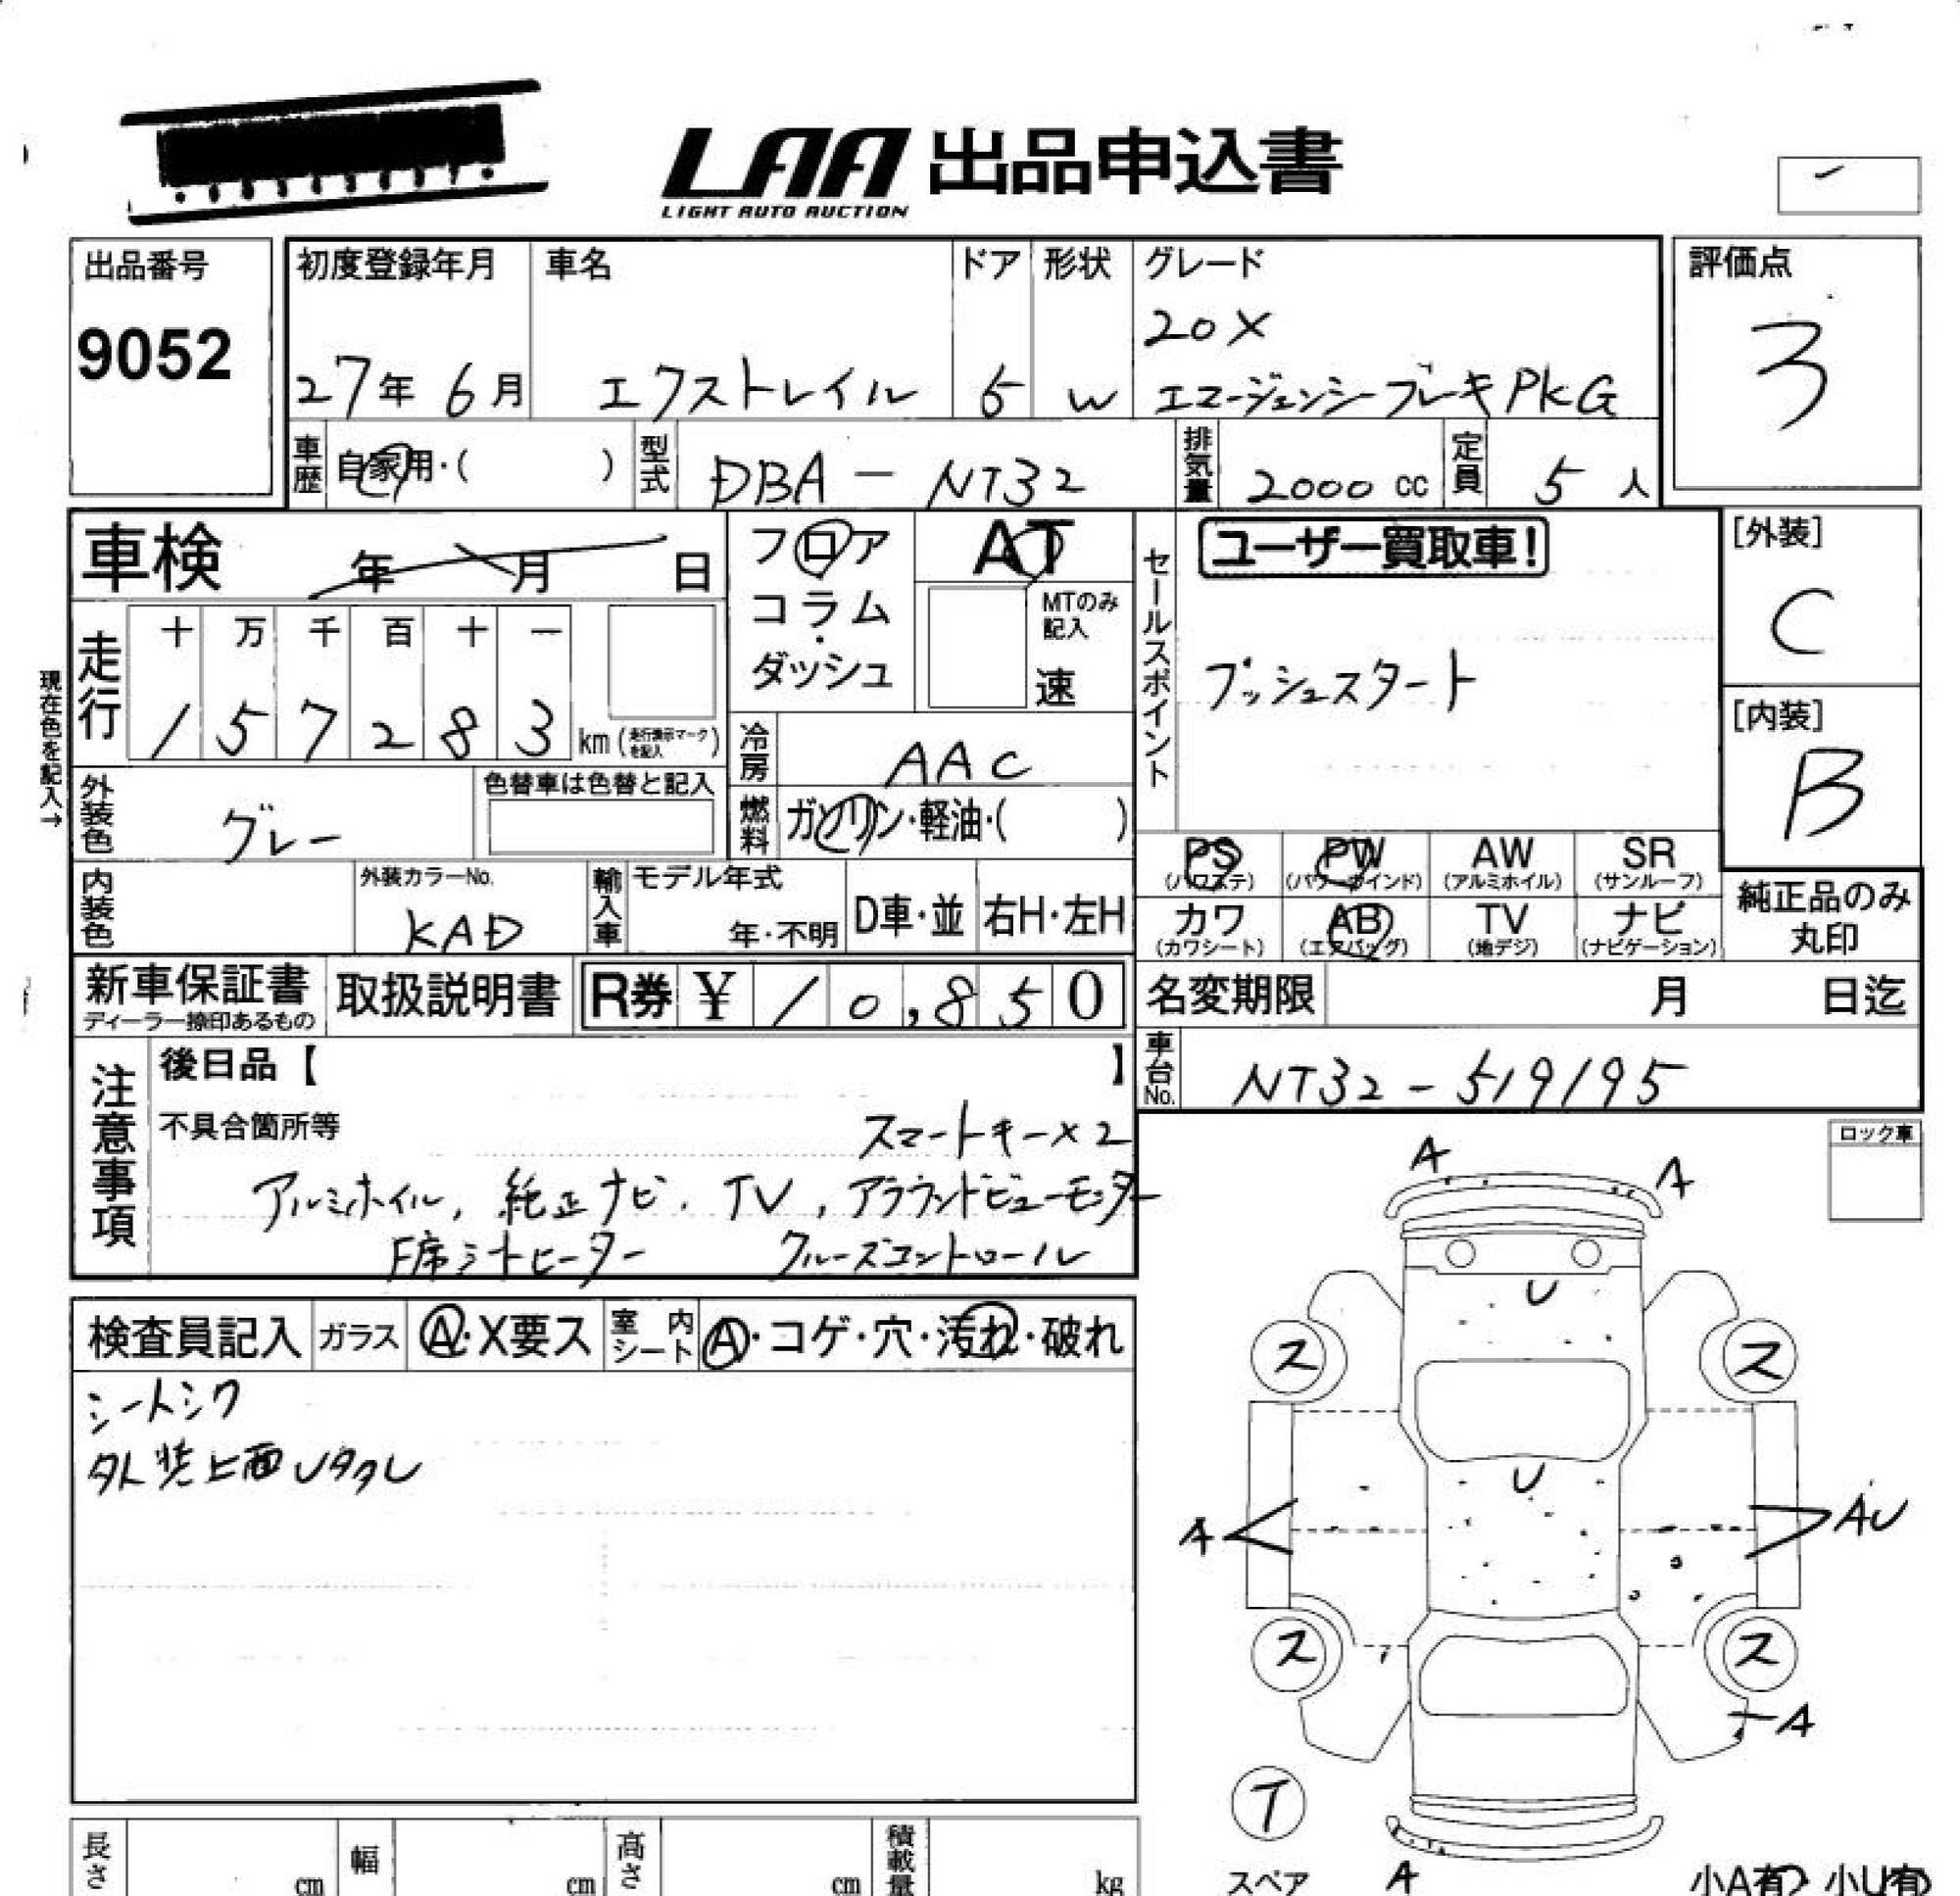 LAA 出品申込書
LIGHT AUTO AUCTION
出品番号
9052
初度登録年月
27年 6月
車名
エクストレイル
ドア
5
形状
W
グレード
20X
エマージェンシーブレーキPKG
評価点
3
車歴
自家用・( )
型式
DBA-NT32
排気量
2000 cc
定員
5 人
車検 年 月 日
フロア
コラム
・
ダッシュ
AT
MTのみ
記入
速
セールスポイント
ユーザー買取車!
プッシュスタート
[外装]
C
[内装]
B
現在色を記入→
走行
十 万 千 百 十 一
1 5 7 2 8 3 km (走行表示マークを記入)
冷房
AAC
燃料
ガソリン・軽油・( )
外装色
グレー
色替車は色替と記入
内装色
外装カラーNo.
KAD
輸入車
モデル年式
年・不明
D車・並
右H・左H
PS
(パワステ)
PW
(パワーウインド)
AW
(アルミホイル)
SR
(サンルーフ)
カワ
(カワシート)
AB
(エアバッグ)
TV
(地デジ)
ナビ
(ナビゲーション)
純正品のみ
丸印
新車保証書
ディーラー捺印あるもの
取扱説明書
R券 ¥ 10,850
名変期限 月 日迄
車台No.
NT32-519195
注意事項
後日品【 】
不具合箇所等
スマートキー×2
アルミホイル, 純正ナビ, TV, アラウンドビューモニター
F席シートヒーター クルーズコントロール
ロック車
検査員記入
ガラス
A・X要ス
室内シート
A・コゲ・穴・汚れ・破れ
シートシワ
外装上面Uタクレ
A
A
U
ス
ス
U
A
AU
ス
ス
A
T
スペア
A
小A有 小U有
長さ
cm
幅
cm
高さ
cm
積載量
kg